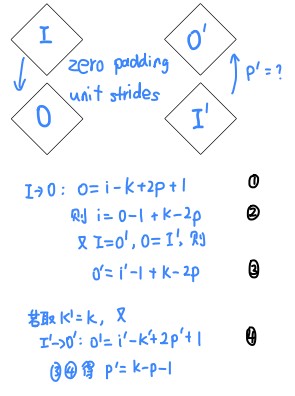 I
O'
zero padding
unit strides
p'=?
O
I'
I→O: o=i-k+2p+1 ①
则 i=o-1+k-2p ②
又 I=O', O=I', 则
o'=i'-1+k-2p ③
若取 k'=k, 又
I'→O': o'=i'-k'+2p'+1 ④
③④得 p'=k-p-1